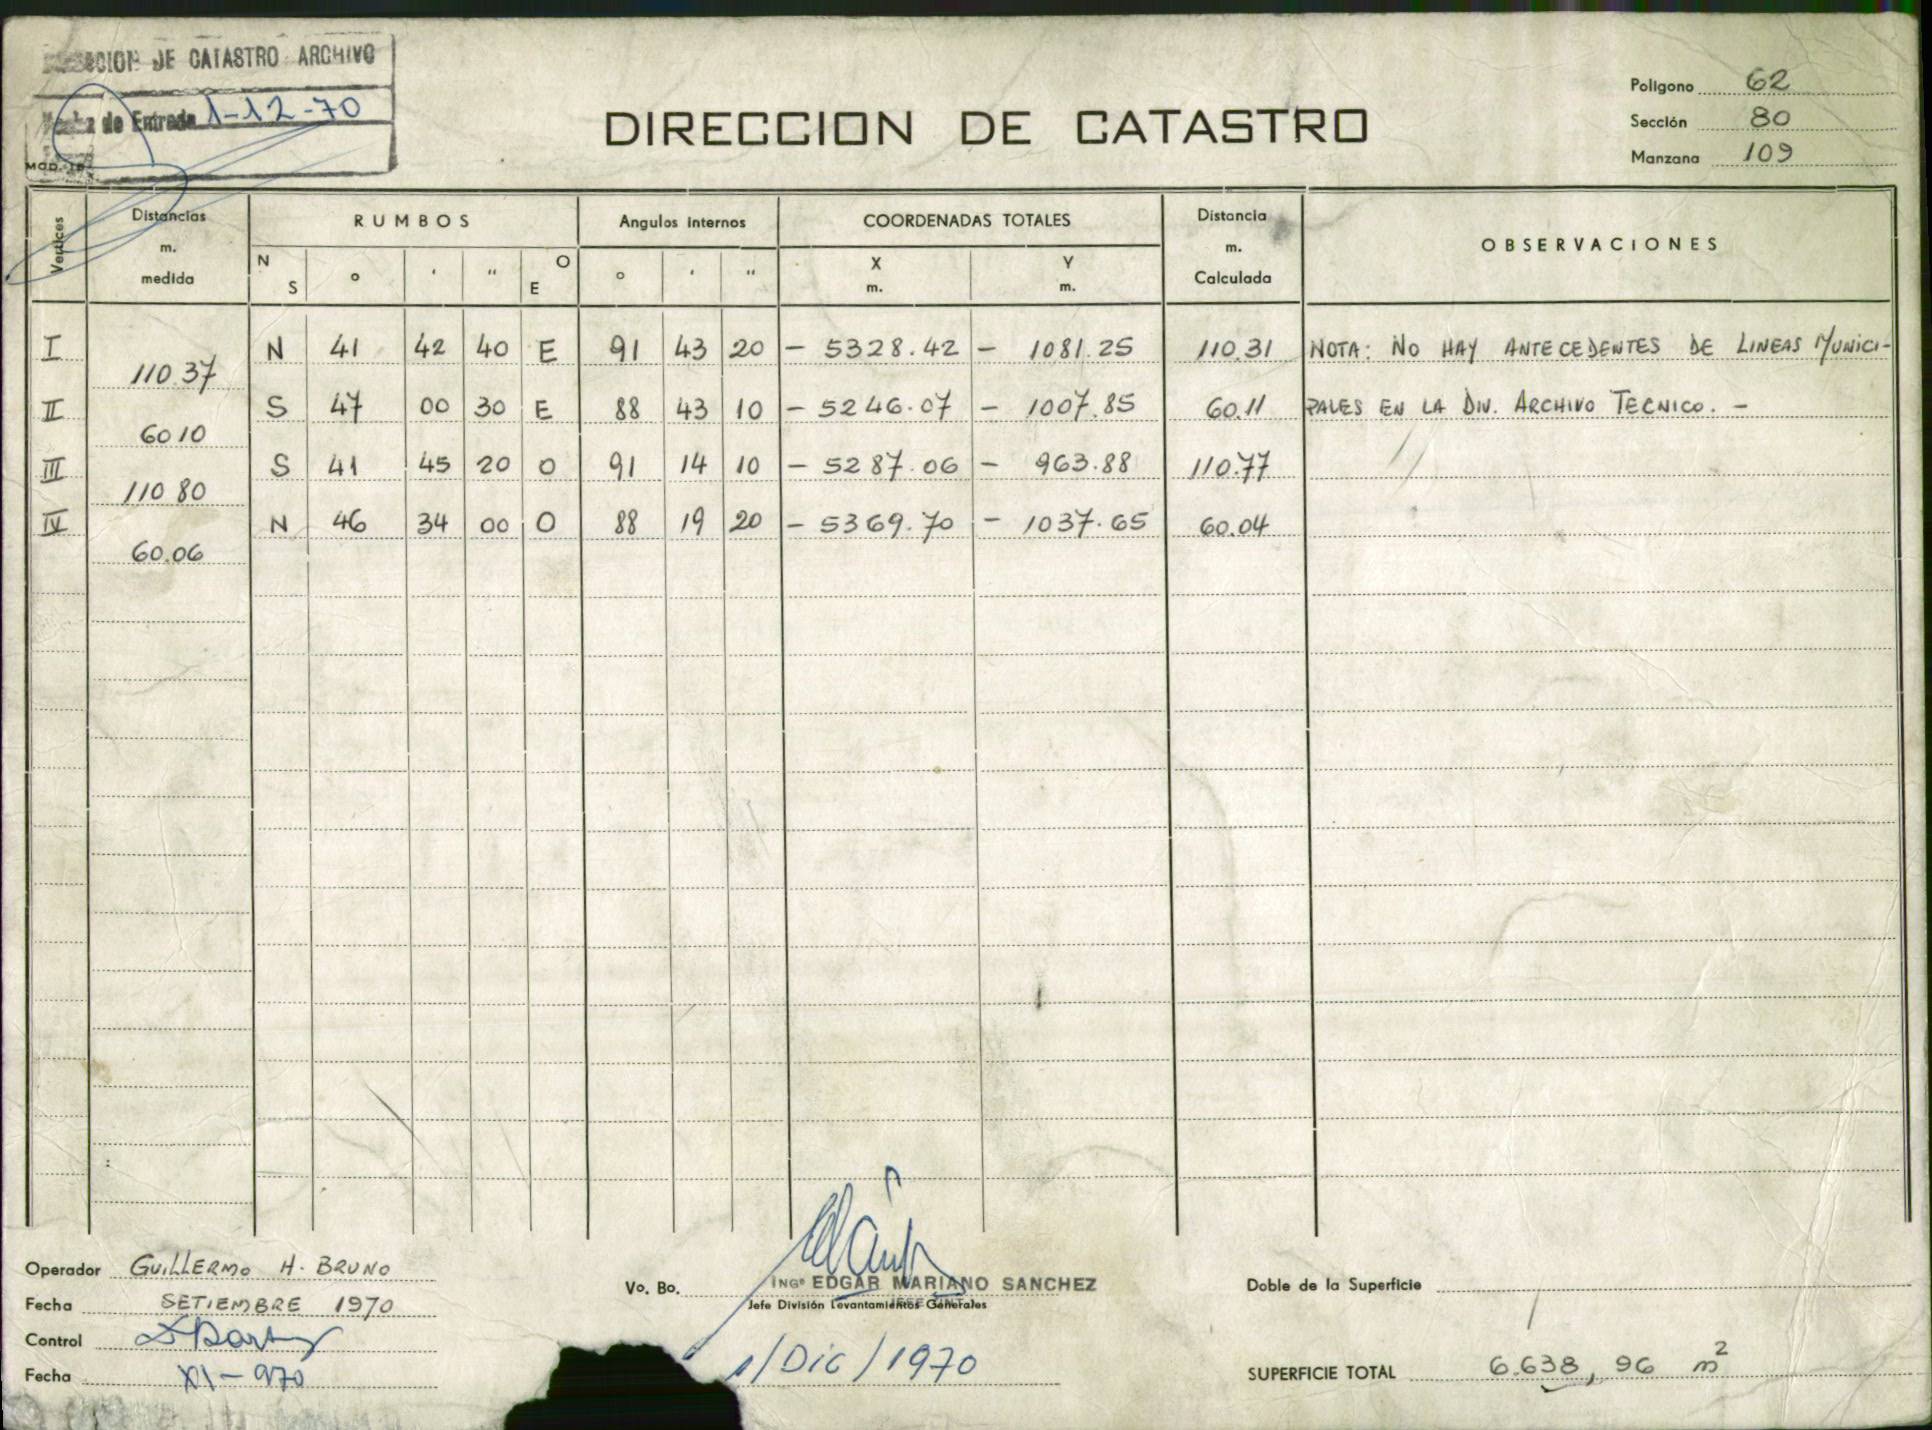 DE CATASTRO ARCHIVO
de Entrada 1-12-70
MOD.
DIRECCION DE CATASTRO
Polígono 62
Sección 80
Manzana 109
Vertices
Distancias m. medida
RUMBOS
Angulos internos
COORDENADAS TOTALES
Distancia m. Calculada
OBSERVACIONES
N S ° ' " O E ° ' " X m. Y m.
I 110.37 N 41 42 40 E 91 43 20 - 5328.42 - 1081.25 110.31 NOTA: NO HAY ANTECEDENTES DE LINEAS MUNICI-
II 60 10 S 47 00 30 E 88 43 10 - 5246.07 - 1007.85 60.11 PALES EN LA DIV. ARCHIVO TECNICO. -
III 110 80 S 41 45 20 O 91 14 10 - 5287.06 - 963.88 110.77
IV 60.06 N 46 34 00 O 88 19 20 - 5369.70 - 1037.65 60.04
Operador GUILLERMO H. BRUNO
Fecha SETIEMBRE 1970
Control
Fecha XI-970
Vo. Bo. INGº EDGAR MARIANO SANCHEZ
Jefe División Levantamientos Generales
1/Dic/1970
Doble de la Superficie
SUPERFICIE TOTAL 6.638,96 m²